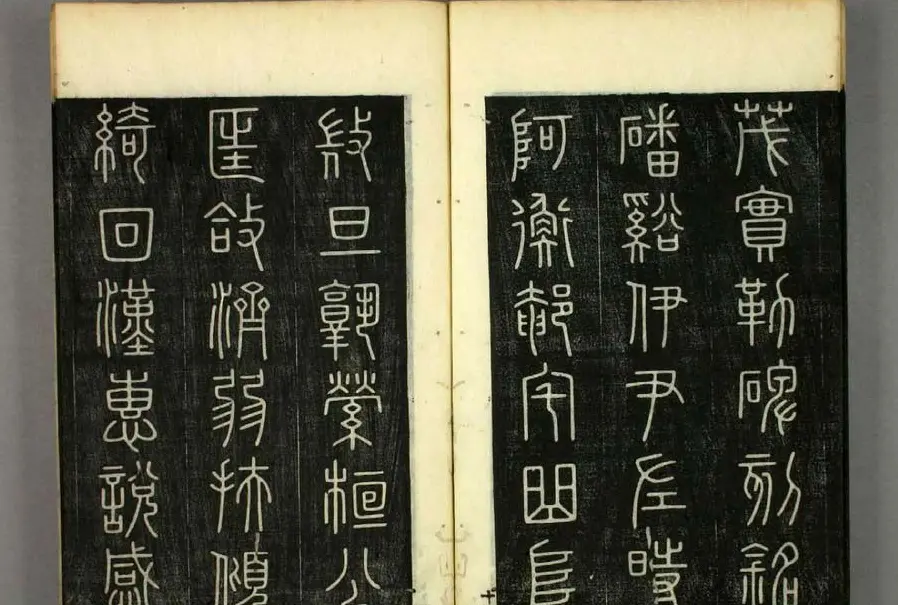 茂實勒碑刻銘
磻谿伊尹左時
阿衡奄宅曲阜
微旦孰營桓公
匡合濟弱扶傾
綺回漢惠說感